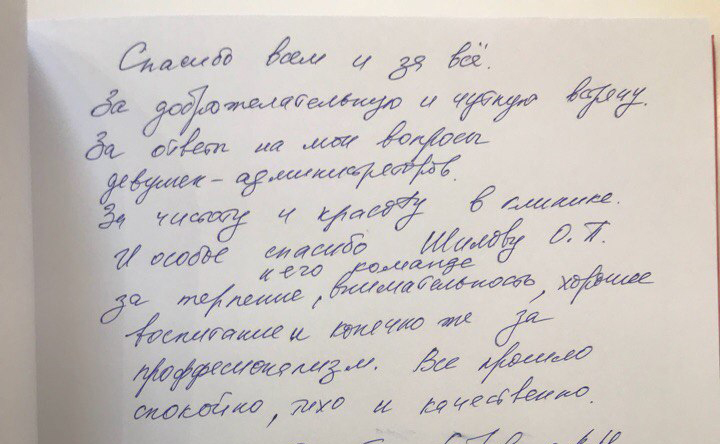 Спасибо всем и за всё.
За доброжелательную и чуткую встречу.
За ответы на мои вопросы
девушек-администраторов.
За чистоту и красоту в клинике.
И особое спасибо Шилову О.П.
и его команде
за терпение, внимательность, хорошее
воспитание и конечно же за
проффесионализм. Все прошло
спокойно, тихо и качественно.